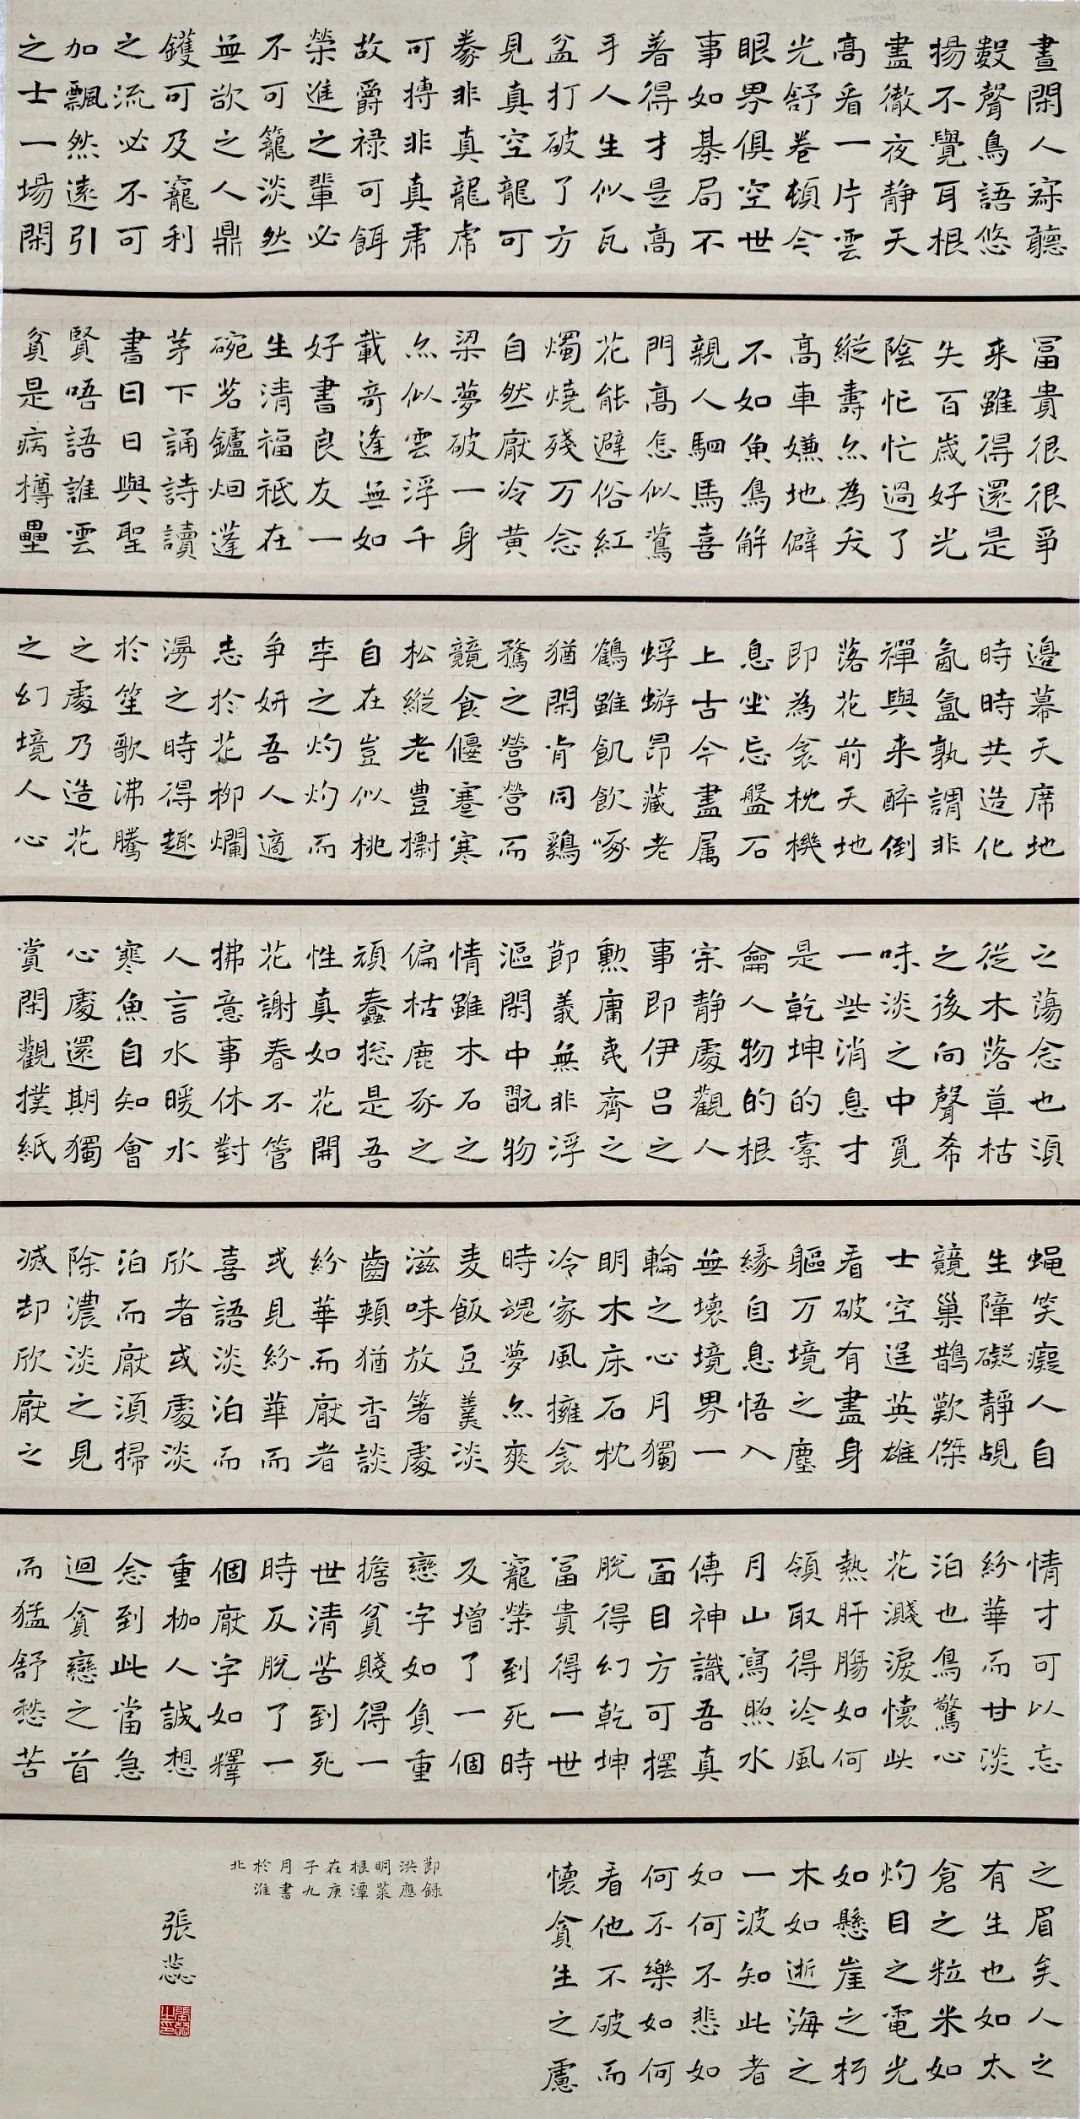 晝閑人寂聽
數聲鳥語悠
揚不覺耳根
盡徹夜靜天
高看一片雲
光舒卷頓令
眼界俱空世
事如棊局不
著得才是高
手人生似瓦
盆打破了方
見真空龍可
豢非真龍虎
可搏非真虎
故爵祿可餌
榮進之輩必
不可籠淡然
無欲之人鼎
鑊可及寵利
之流必不可
加飄然遠引
之士一場閑
富貴很很爭
来雖得還是
失百歲好光
陰忙忙過了
縱壽亦為夭
高車嫌地僻
不如魚鳥解
親人駟馬喜
門高怎似鶯
花能避俗紅
燭燒殘万念
自然厭冷黃
梁夢破一身
亦似雲浮千
載奇逢無如
好書良友一
生清福祇在
碗茗鑪烟蓬
茅下誦詩讀
書日日與聖
賢唔語誰雲
貧是病樽罍
邊幕天席地
時時共造化
氤氳孰謂非
禪與来醉倒
落花前天地
即為衾枕機
息坐忘盤石
上古今盡属
蜉蝣昂藏老
鶴雖飢飲啄
猶閑肯同鷄
鶩之營營而
競食偃蹇寒
松縱老豊標
自在豈似桃
李之灼灼而
争妍吾人適
志於花柳爛
漫之時得趣
於笙歌沸騰
之處乃造花
之幻境人心
之蕩念也須
從木落草枯
之後向聲希
味淡之中覓
一些消息才
是乾坤的橐
龠人物的根
宗靜處觀人
事即伊呂之
勳庸夷齊之
節義無非浮
漚閑中翫物
情雖木石之
偏枯鹿豕之
頑蠢總是吾
性真如花開
花謝春不管
拂意事休對
人言水暖水
寒魚自知會
心處還期獨
賞閑觀撲紙
蝇笑癡人自
生障礙靜覘
競巢鵲歎傑
士空逞英雄
看破有盡身
軀万境之塵
緣自息悟入
無壞境界一
輪之心月獨
明木床石枕
冷家風擁衾
時魂夢亦爽
麦飯豆羹淡
滋味放箸處
齒頰猶香談
紛華而厭者
或見紛華而
喜語淡泊而
欣者或處淡
泊而厭須掃
除濃淡之見
滅却欣厭之
情才可以忘
紛華而甘淡
泊也鳥驚心
花濺淚懷此
熱肝腸如何
領取得冷風
月山寫照水
傳神識吾真
面目方可擺
脫得幻乾坤
富貴得一世
寵榮到死時
反增了一個
戀字如負重
擔貧賤得一
世清苦到死
時反脫了一
個厭字如釋
重枷人誠想
念到此當急
迴貪戀之首
而猛舒愁苦
之眉矣人之
有生也如太
倉之粒米如
灼目之電光
如懸崖之朽
木如逝海之
一波知此者
如何不悲如
何不樂如何
看他不破而
懷貪生之慮
節錄
洪應
明菜
根潭
在庚
子九
月書
於淮
北
張蕊